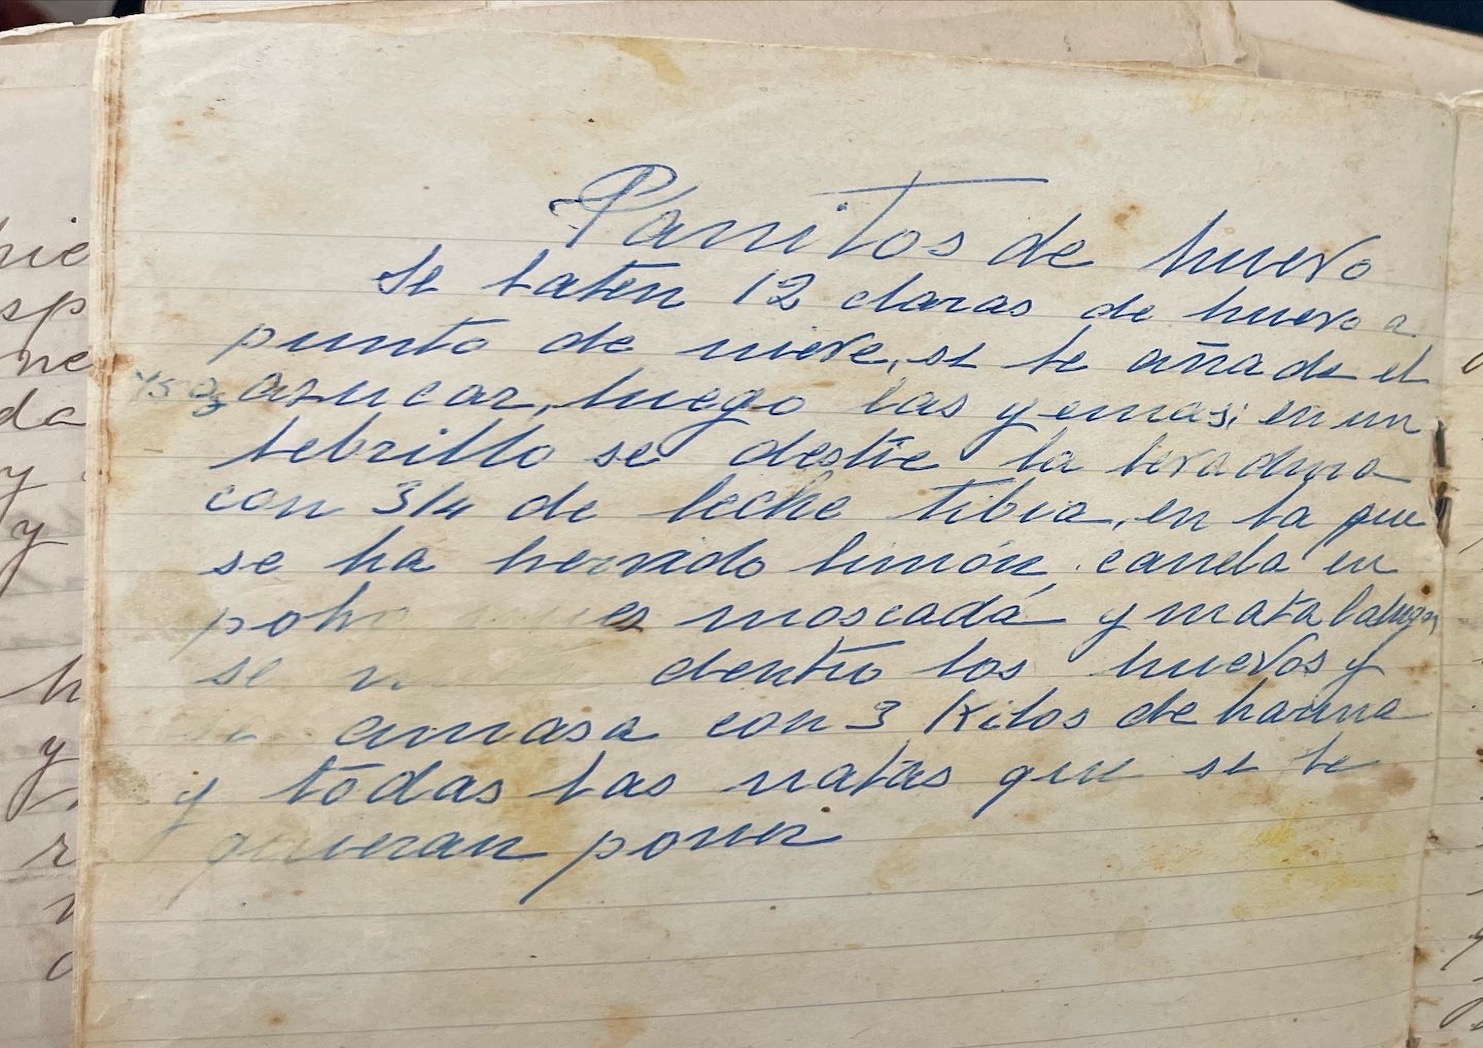 Panitos de huevo
Se baten 12 claras de huevo a
punto de nieve, se le añade el
azucar, luego las yemas; en un
lebrillo se deslie la levadura
con 3/4 de leche tibia, en la que
se ha hervido limón, canela en
polvo moscada y matalahuga
se dentro los huevos y
amasa con 3 Kilos de harina
y todas las natas que se le
quieran poner